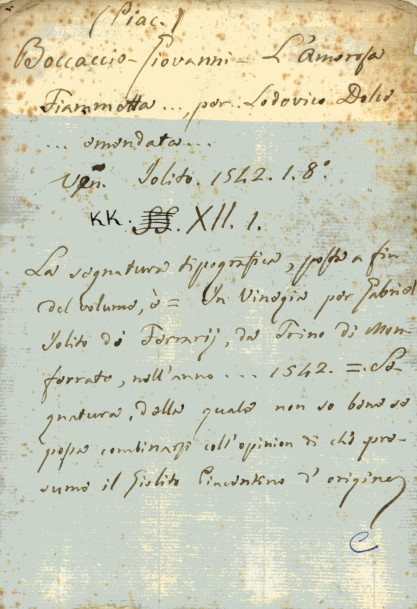 (Piac.)
Boccaccio Giovanni - L'Amorosa
Fiammetta ..., per Lodovico Dolce
... emendata ...
Ven. Jolito. 1542. 1. 8°
KK. XII. 1.
La segnatura tipografica, posta a fin
del volume, è = In Vinegia per Gabriel
Jolito de Ferrarij, da Trino di Mon-
ferrato, nell'anno ... 1542. = Se-
gnatura, della quale non so bene se
possa combinarsi coll'opinion di chi pre-
sume il Giolito Piacentino d'origine
C